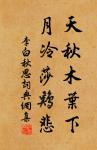 天秋木葉下
月冷莎鷄悲
李白秋思詞典網集